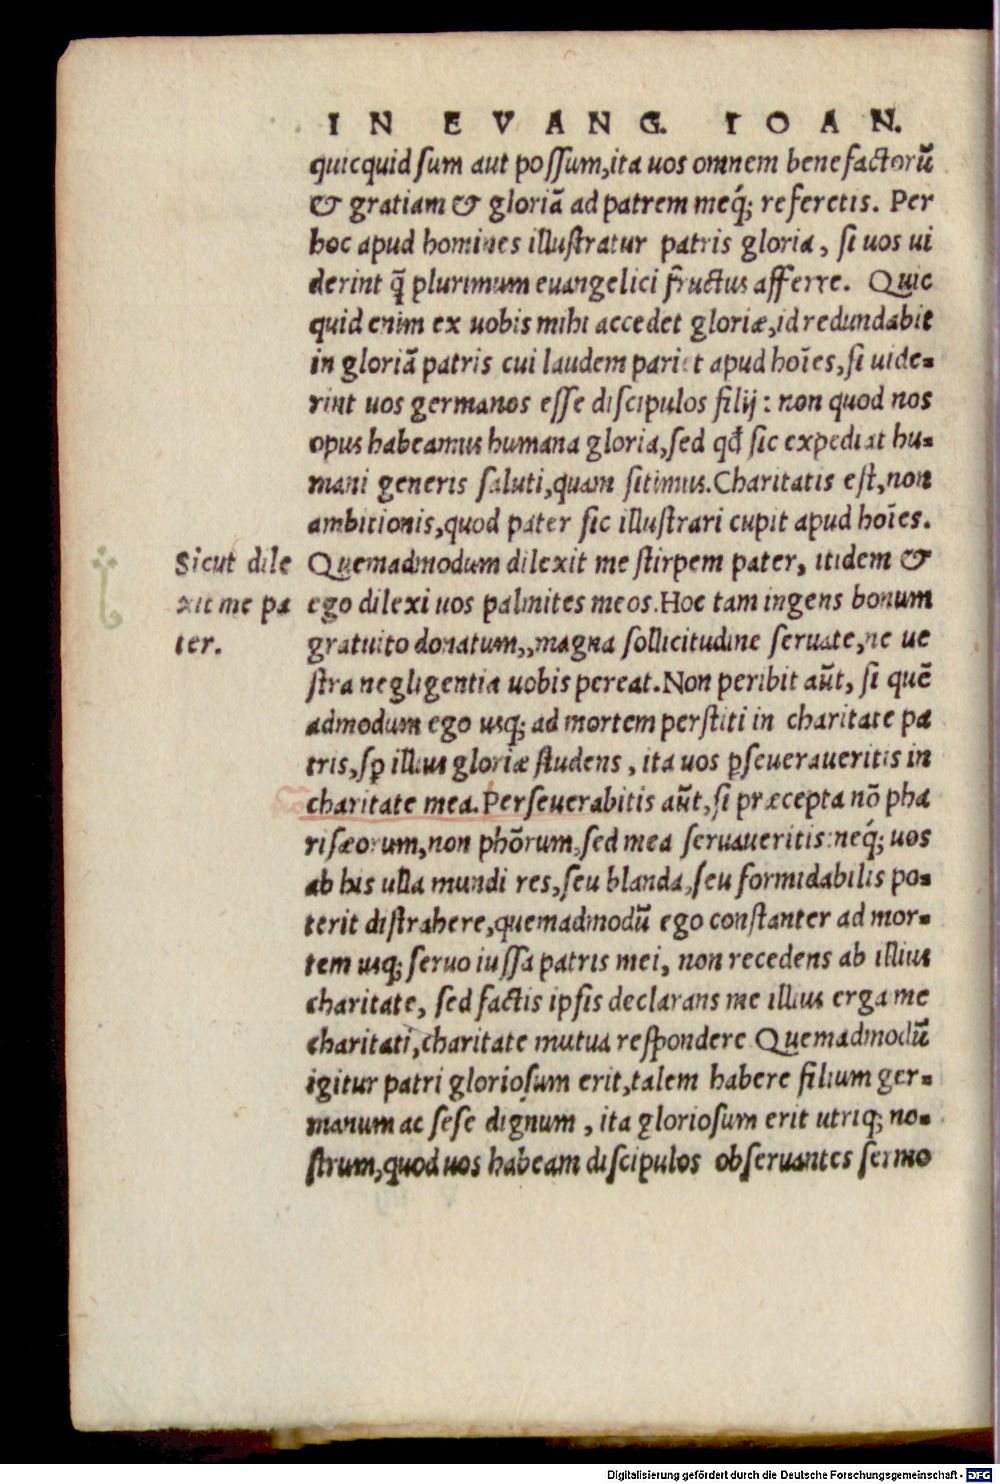 IN EVANG. IOAN.
quicquid sum aut possum,ita uos omnem benefactorū
& gratiam & gloriā ad patrem meq́; referetis. Per
hoc apud homines illustratur patris gloria, si uos ui
derint q̃ plurimum euangelici fructus afferre. Quic
quid enim ex uobis mihi accedet gloriæ,id redundabit
in gloriā patris cui laudem pariet apud hoīes,si uide-
rint uos germanos esse discipulos filij: non quod nos
opus habeamus humana gloria,sed qđ sic expediat hu-
mani generis saluti,quam sitimus.Charitatis est,non
ambitionis,quod pater sic illustrari cupit apud hoīes.
Sicut dile
xit me pa
ter.
Quemadmodum dilexit me stirpem pater, itidem &
ego dilexi uos palmites meos.Hoc tam ingens bonum
gratuito donatum,,magna sollicitudine seruate,ne ue
stra negligentia uobis pereat.Non peribit aūt, si quē
admodum ego usq; ad mortem perstiti in charitate pa
tris,sꝑ illius gloriæ studens, ita uos ꝑseueraueritis in
charitate mea.Perseuerabitis aūt,si præcepta nō pha
risæorum,non phōrum,sed mea seruaueritis:neq́; uos
ab his ulla mundi res,seu blanda,seu formidabilis po-
terit distrahere,quemadmodū ego constanter ad mor-
tem usq; seruo iussa patris mei, non recedens ab illius
charitate, sed factis ipsis declarans me illius erga me
charitati,charitate mutua respondere Quemadmodū
igitur patri gloriosum erit,talem habere filium ger-
manum ac sese dignum, ita gloriosum erit utriq; no-
strum,quod uos habeam discipulos obseruantes sermo
Digitalisierung gefördert durch die Deutsche Forschungsgemeinschaft - DFG